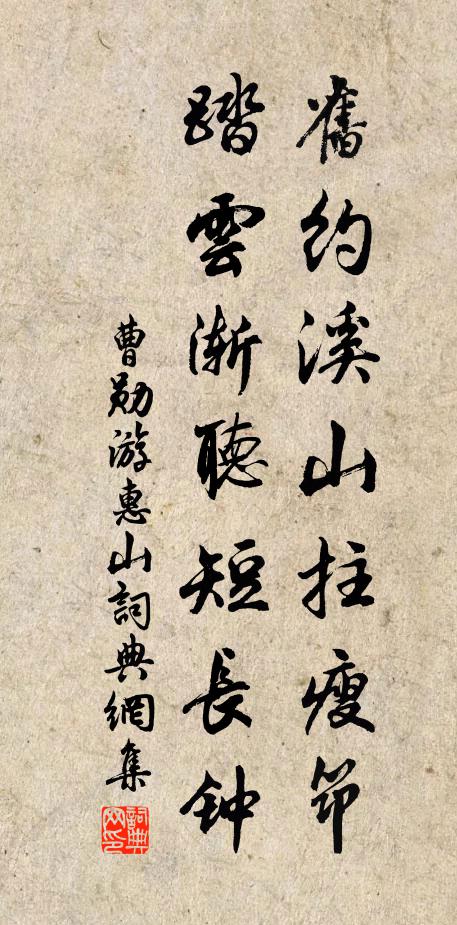 舊約溪山拄瘦筇
踏雲漸聽短長钟
曹勛游惠山詞典網集
詞典网印